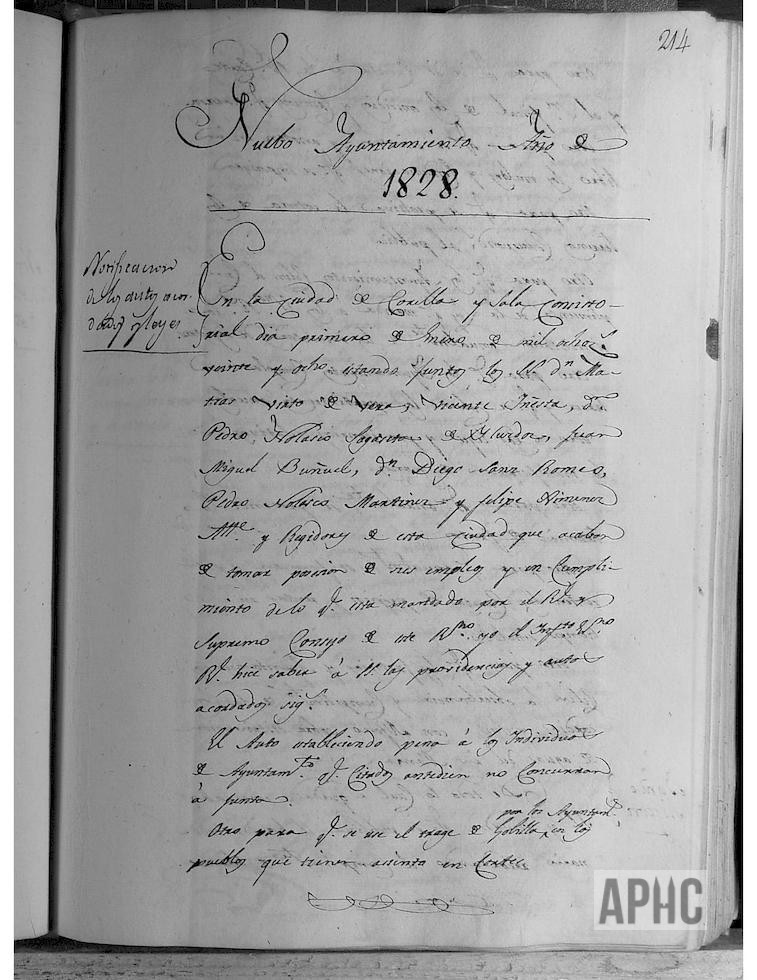 214
Nuebo Ayuntamiento Año de
1828.
Notificacion
de los autos acor-
dados y leyes.
En la Ciudad de Corella y Sala Consisto-
rial dia primero de Enero de mil ochoc.s
veinte y ocho: estando juntos los SS. d.n Ma-
tias Virto de Vera, Vicente Yñesta, d.n
Pedro Nolasco Sagaseta de Ylurdoz, Juan
Miguel Buñuel, d.n Diego Sanz Romeo,
Pedro Nolasco Martinez y Felipe Ximenez
Alt.e y Regidores de esta Ciudad que acaban
de tomar posesion de sus empleos y en Cumpli-
miento de lo q.e esta mandado por el R.l y
Supremo Consejo de este R.no yo el Ynf.to Es.no
R.l hice saber à SS. las providencias y autos
acordados sig.s
El Auto estableciendo pena à los Individuos
de Ayuntam.to q.e Citados antedien no Concurran
à junta.
Otro para q.e se use el trage de Golilla por los Ayuntam.s en los
pueblos que tienen asiento en Cortes.
APHC